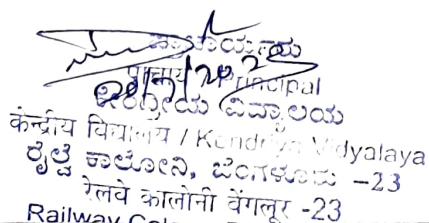 ಪ್ರಾಚಾರ್ಯರು
Principal
ಕೇಂದ್ರೀಯ ವಿದ್ಯಾಲಯ
केन्द्रीय विद्यालय / Kendriya Vidyalaya
ರೈಲ್ವೆ ಕಾಲೋನಿ, ಬೆಂಗಳೂರು -23
रेलवे कालोनी बेंगलूर -23
Railway